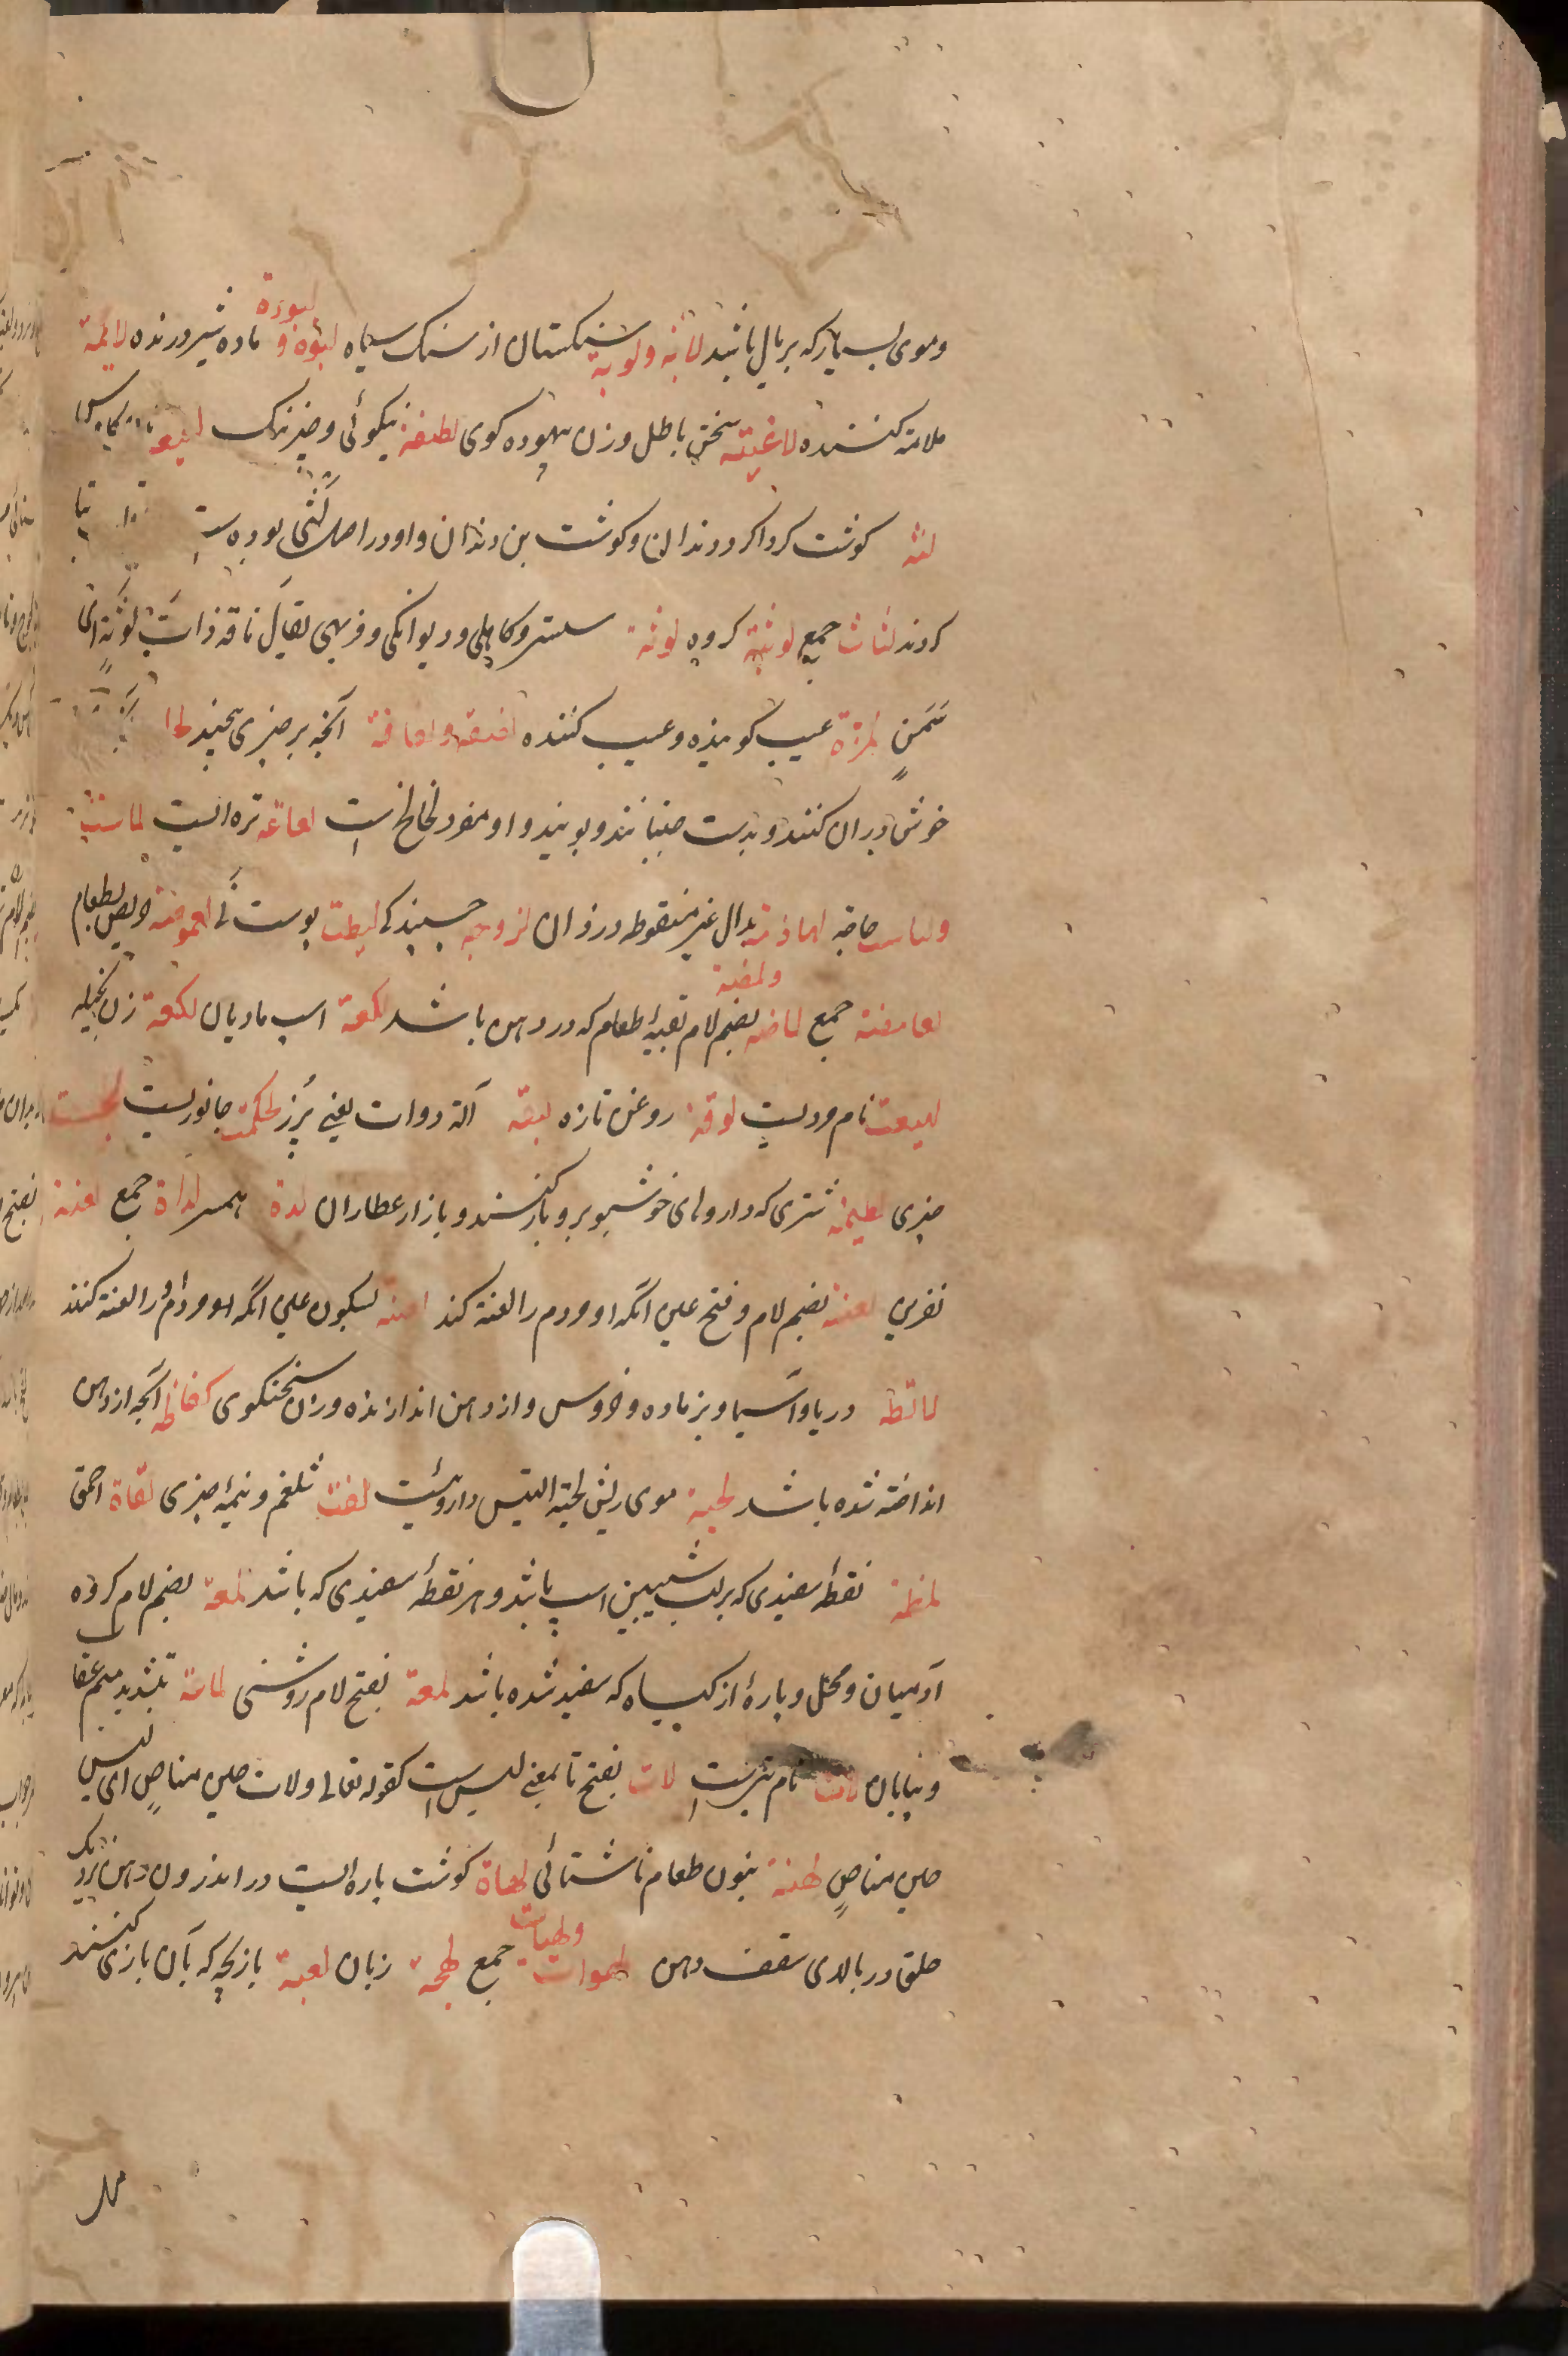 وموی بسیار که بریال باشد لابة ولوبة سنگستان از سنک سیاه لبوة و لبوءة ماده شیر درنده لائمة
ملامة کننده لاغیة سخن باطل وزن بیهوده کوی لطیفة نیکوئی وچیز نیک
لثة کوشت کرداکرد دندان وکوشت بن دندان واو در اصل لثی بوده ست
کردند لثات جمع لوثة کروه لوثة سستی وکاهلی ودیوانکی وفربهی یقال ناقة ذات لوثة ای
سمن لمزة عیب کوینده وعیب کننده لفیفة ولفافة آنچه بر چیزی پیچند
خوش دران کنند وبدست جنبانند وبویند واو مفرد لخالخ است لعاعة تره ایست لماسة
ولباس حاجة بدال غیر منقوطه درزان لزوجة چسپندکی لیطة پوست نی لعموظة حریص بطعام
لعامظة جمع لماظة ولمظة بضم لام بقیهٔ طعام که در دهن باشد لکعة اسپ مادیان لکعة زن بخیله
نام مردیست لوقة روغن تازه لیقة آلة دوات یعنی پرز لحکة جانوریست
چیزی لطیمة شتری که داروهای خوشبو برو بار کنند وبازار عطاران لدة همسر لداة جمع لعنة بفتح
نفرین لعنة بضم لام وفتح عین آنکه او مردم را لعنة کند لعنة بسکون عین آنکه او را مردم لعنة کنند
لافظة دریا وآسیا وبز ماده وخروس واز دهن اندازنده وزن سخنکوی لفاظة آنچه از دهن
انداخته شده باشد لحیة موی ریش لحیة التیس داروئیست لفت شلغم ونیمهٔ چیزی لفاة احمق
لمظة نقطهٔ سفیدی که بر لب شیبین اسپ باشد وهر نقطهٔ سفیدی که باشد لمعة بضم لام کروه
آدمیان ومحل وپارهٔ از کیاه که سفید شده باشد لمعة بفتح لام روشنی لماعة بتشدید میم عقاب
وبیابان لات نام بتیست لات بفتح تا بمعنی لیس است کقوله تعالی ولات حین مناص ای لیس
حین مناص لهنة بنون طعام ناشتائی لهاة کوشت پاره ایست در اندرون دهن نزدیک
حلق در بالای سقف دهن لهوات ولهیات جمع لهجة زبان لعبة بازیچه که بآن بازی کنند